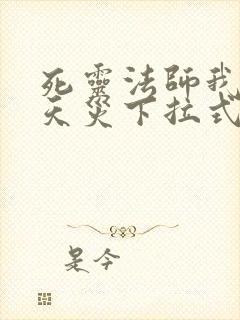 死靈法師我
天災下拉式
是今